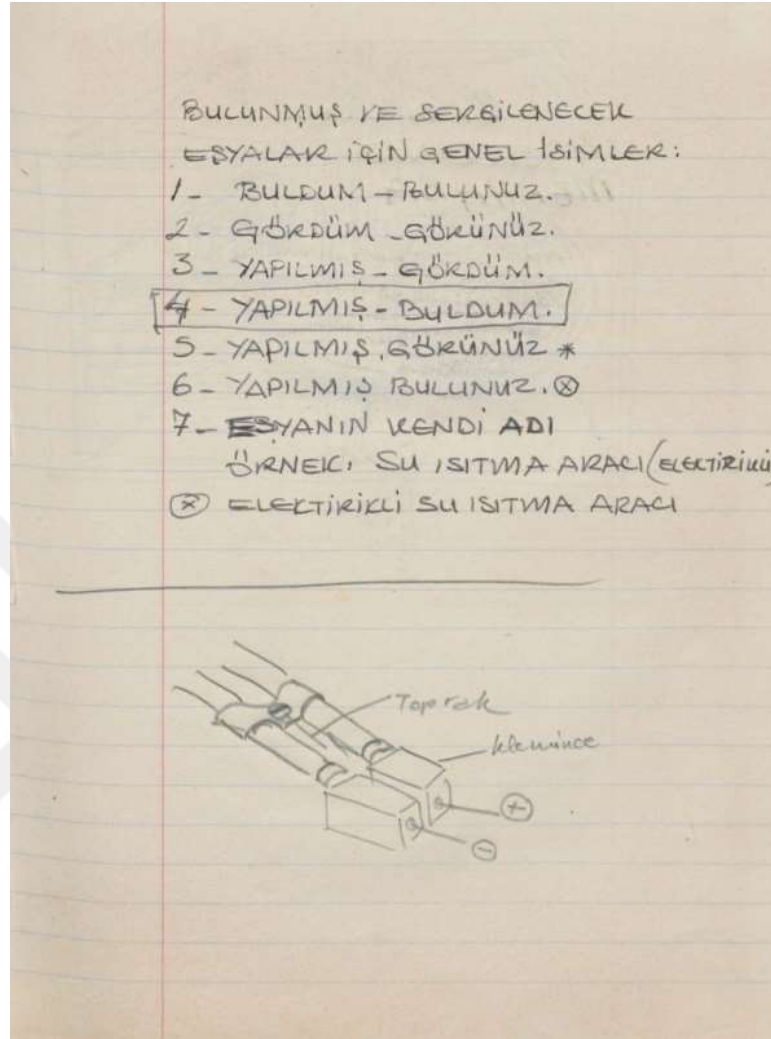 BULUNMUŞ VE SERGİLENECEK
EŞYALAR İÇİN GENEL İSİMLER:
1- BULDUM-BULUNUZ.
2- GÖRDÜM-GÖRÜNÜZ.
3- YAPILMIŞ-GÖRDÜM.
4- YAPILMIŞ-BULDUM.
5- YAPILMIŞ, GÖRÜNÜZ *
6- YAPILMIŞ BULUNUZ. ⊗
7- EŞYANIN KENDİ ADI
ÖRNEK: SU ISITMA ARACI (ELEKTİRİKLİ
⊗ ELEKTİRİKLİ SU ISITMA ARACI
Toprak
klemince
+
-